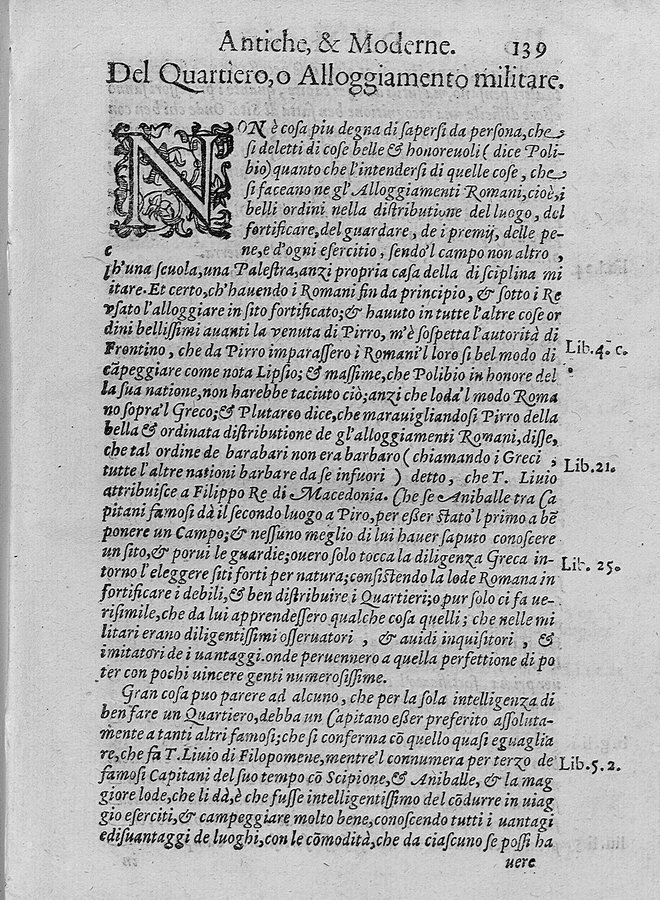 Antiche, & Moderne. 139
Del Quartiero, o Alloggiamento militare.
NON è cosa piu degna di sapersi da persona, che
si deletti di cose belle & honoreuoli ( dice Poli-
bio) quanto che l'intendersi di quelle cose, che
si faceano ne gl'Alloggiamenti Romani, cioè, i
belli ordini nella distributione del luogo, del
fortificare, del guardare, de i premij, delle pe-
ne, e d'ogni esercitio, sendo'l campo non altro,
c
ch'una scuola, una Palestra, anzi propria casa della disciplina mi
itare. Et certo, ch'hauendo i Romani fin da principio, & sotto i Re
vsato l'alloggiare in sito fortificato; & hauuto in tutte l'altre cose or
dini bellissimi auanti la venuta di Pirro, m'è sospetta l'autorità di
Frontino, che da Pirro imparassero i Romani'l loro si bel modo di Lib. 4. c.
cāpeggiare come nota Lipsio; & massime, che Polibio in honore del
la sua natione, non harebbe taciuto ciò; anzi che loda'l modo Roma
no sopra'l Greco; & Plutarco dice, che marauigliandosi Pirro della
bella & ordinata distributione de gl'alloggiamenti Romani, disse,
che tal ordine de barabari non era barbaro ( chiamando i Greci,
tutte l'altre nationi barbare da se infuori ) detto, che T. Liuio Lib. 21.
attribuisce a Filippo Re di Macedonia. Che se Aniballe tra Ca
pitani famosi dà il secondo luogo a Piro, per eßer stato'l primo a bē
ponere un Campo; & nessuno meglio di lui hauer saputo conoscere
un sito, & porui le guardie; ouero solo tocca la diligenza Greca in- Lib. 25.
torno l'eleggere siti forti per natura; consistendo la lode Romana in
fortificare i debili, & ben distribuire i Quartieri; o pur solo ci fa ue-
risimile, che da lui apprendessero qualche cosa quelli; che nelle mi
litari erano diligentissimi osseruatori, & auidi inquisitori, &
imitatori de i uantaggi. onde peruennero a quella perfettione di po
ter con pochi uincere genti numerosissime.
Gran cosa puo parere ad alcuno, che per la sola intelligenza di
ben fare un Quartiero, debba un Capitano eßer preferito assoluta-
mente a tanti altri famosi; che si conferma cō quello quasi eguaglia
re, che fa T. Liuio di Filopomene, mentre'l connumera per terzo de Lib. 5. 2.
famosi Capitani del suo tempo cō Scipione, & Aniballe, & la mag
giore lode, che li dà, è che fusse intelligentissimo del cōdurre in uiag
gio eserciti, & campeggiare molto bene, conoscendo tutti i uantagi
e disuantaggi de luoghi, con le cōmodità, che da ciascuno se possi ha
uere